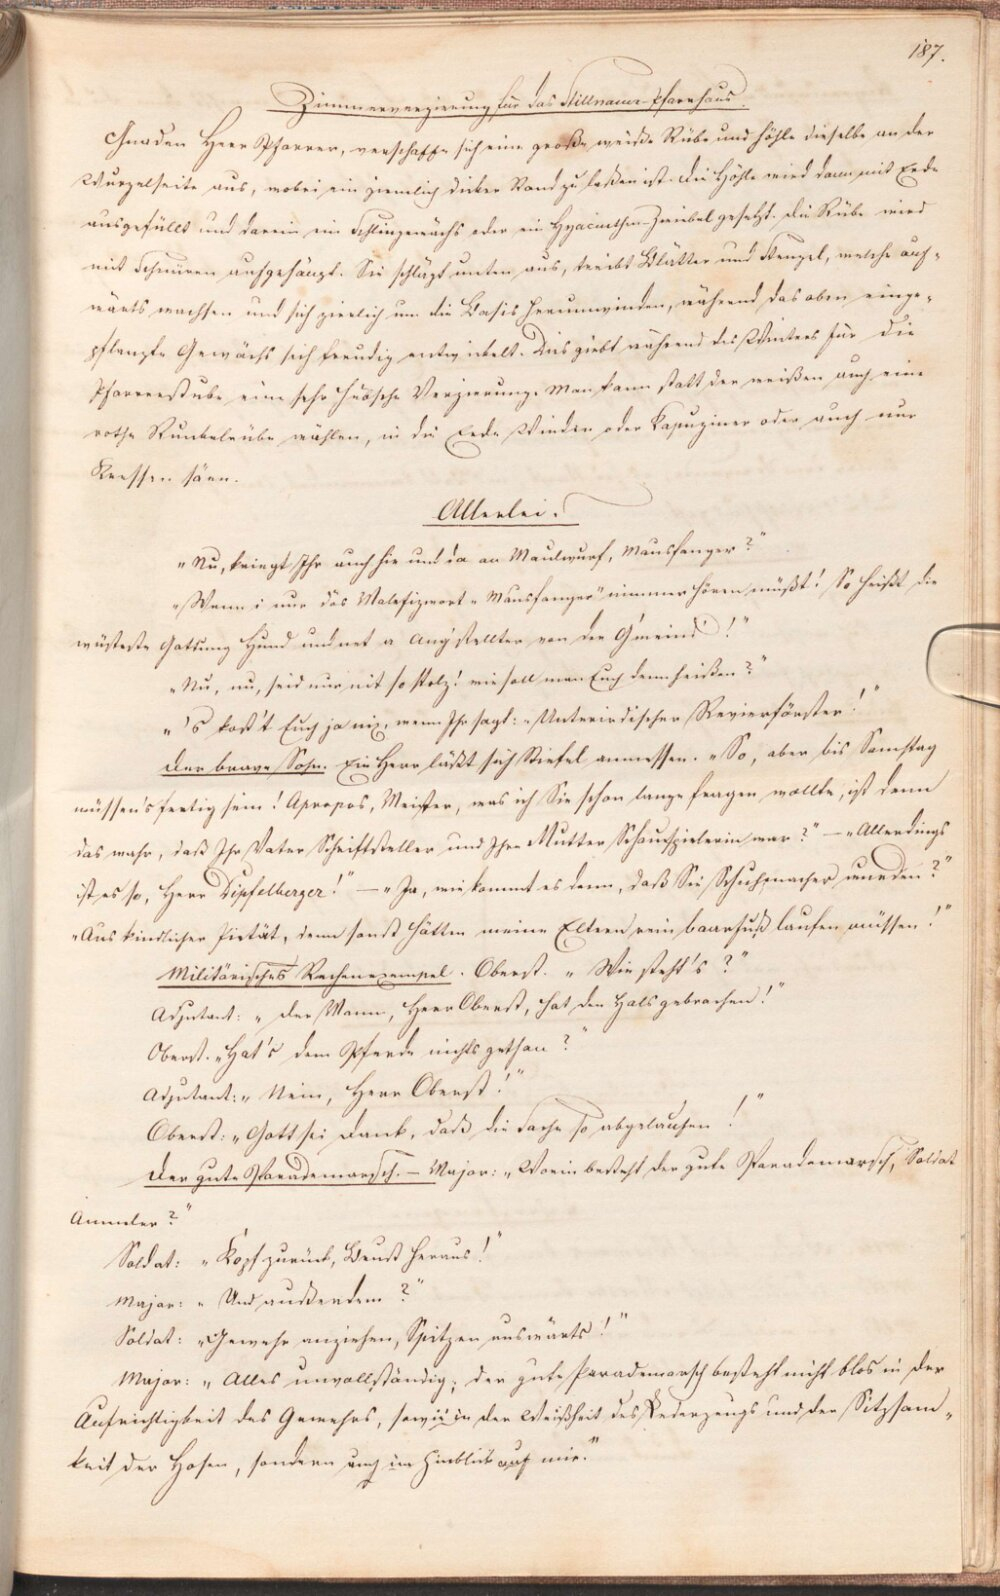 187.
Zimmerverzierung für das Stillnauer Pfarrhaus.
Gnaden Herr Pfarrer, verschaffe sich eine große weiße Rübe und höhle dieselbe an der
Wurzelseite aus, wobei ein ziemlich dicker Rand zu lassen ist. Die Höhle wird dann mit Erde
ausgefüllt und darein ein Schlinggewächs oder ein Hyacinthen-Zwiebel gesetzt. Die Rübe wird
mit Schnüren aufgehängt. Sie schlägt unten aus, treibt Blätter und Stengel, welche auf-
wärts wachsen und sich zierlich um die Basis herumwinden, während das oben einge-
pflanzte Gewächs sich freudig entwickelt. Dies giebt während des Winters für die
Pfarrerstube eine sehr hübsche Verzierung. Man kann statt der weißen auch eine
rothe Runkelrübe wählen, in die Erde Winden oder Kapuziner oder auch nur
Kressen säen.
Allerlei.
„Nu, kriegt Ihr auch hie und da an Maulwurf, Mausfanger?"
„Wenn i nur das Malefizwort „Mausfanger" nimmer hören müßt! So heißt die
wüsteste Gattung Hund und net a Ang'stellter von der G'meind!"
„Nu, nu, seid nur nit so stolz! wie soll man Euch denn heißen?"
„'s kost't Euch ja nix, wenn Ihr sagt: „Unterirdischer Revierförster!"
Der brave Sohn. Ein Herr läßt sich Stiefel anmessen. „So, aber bis Samstag
müssen's fertig sein! Apropos, Meister, was ich Sie schon lange fragen wollte, ist denn
das wahr, daß Ihr Vater Schriftsteller und Ihre Mutter Schauspielerin war?" – „Allerdings
ist es so, Herr Dipfelberger!" – „Ja, wie kommt es denn, daß Sie Schuhmacher wurden?"
„Aus kindlicher Pietät, denn sonst hätten meine Eltern rein baarfuß laufen müssen!"
Militärisches Rechenexempel. Oberst. „Wie steht's?"
Adjutant: „Der Mann, Herr Oberst, hat den Hals gebrochen!"
Oberst. „Hat's dem Pferde nichts gethan?"
Adjutant: „Nein, Herr Oberst!"
Oberst: „Gott sei Dank, daß die Sache so abgelaufen!"
Der gute Parademarsch. – Major: „Worin besteht der gute Parademarsch, Soldat
Ammler?"
Soldat: „Kopf zurück, Brust heraus!"
Major: „Und außerdem?"
Soldat: „Gewehr anziehen, Spitzen auswärts!"
Major: „Alles unvollständig; der gute Parademarsch besteht nicht blos in der
Aufrichtigkeit des Gewehrs, sowie in der Weißheit des Lederzeugs und der Sitzsam-
keit der Hosen, sondern auch im Hinblick auf mir."